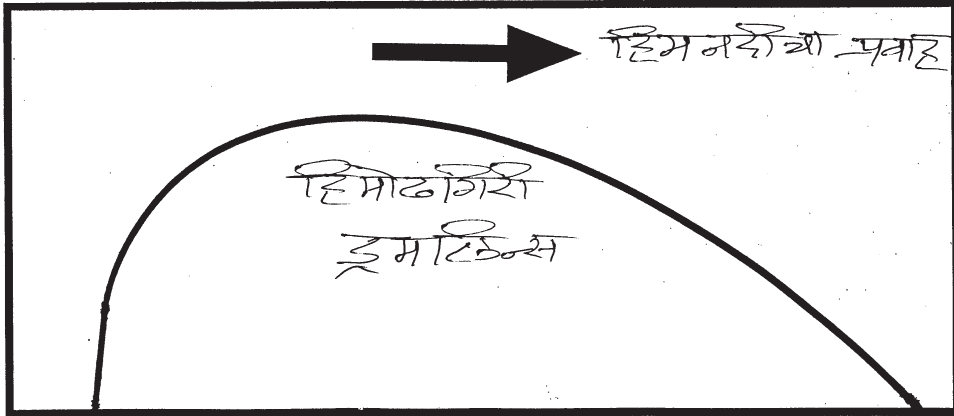 हिमनदीचा प्रवाह
हिमोढगिरी
ड्रमलिन्स